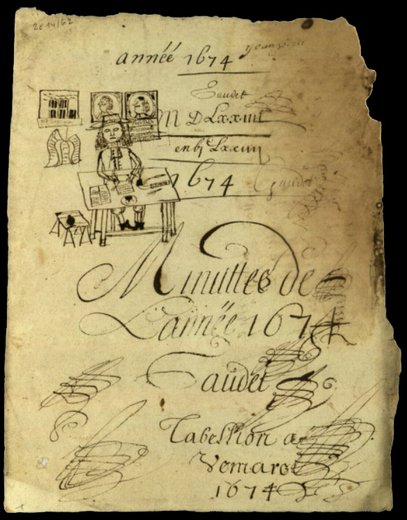 2E14/62
année 1674
Gaudet
M D LXXIIII
1674
Gaudet
Minuttes de
L'année 1674
Gaudet
Tabellion a
Vemars
1674